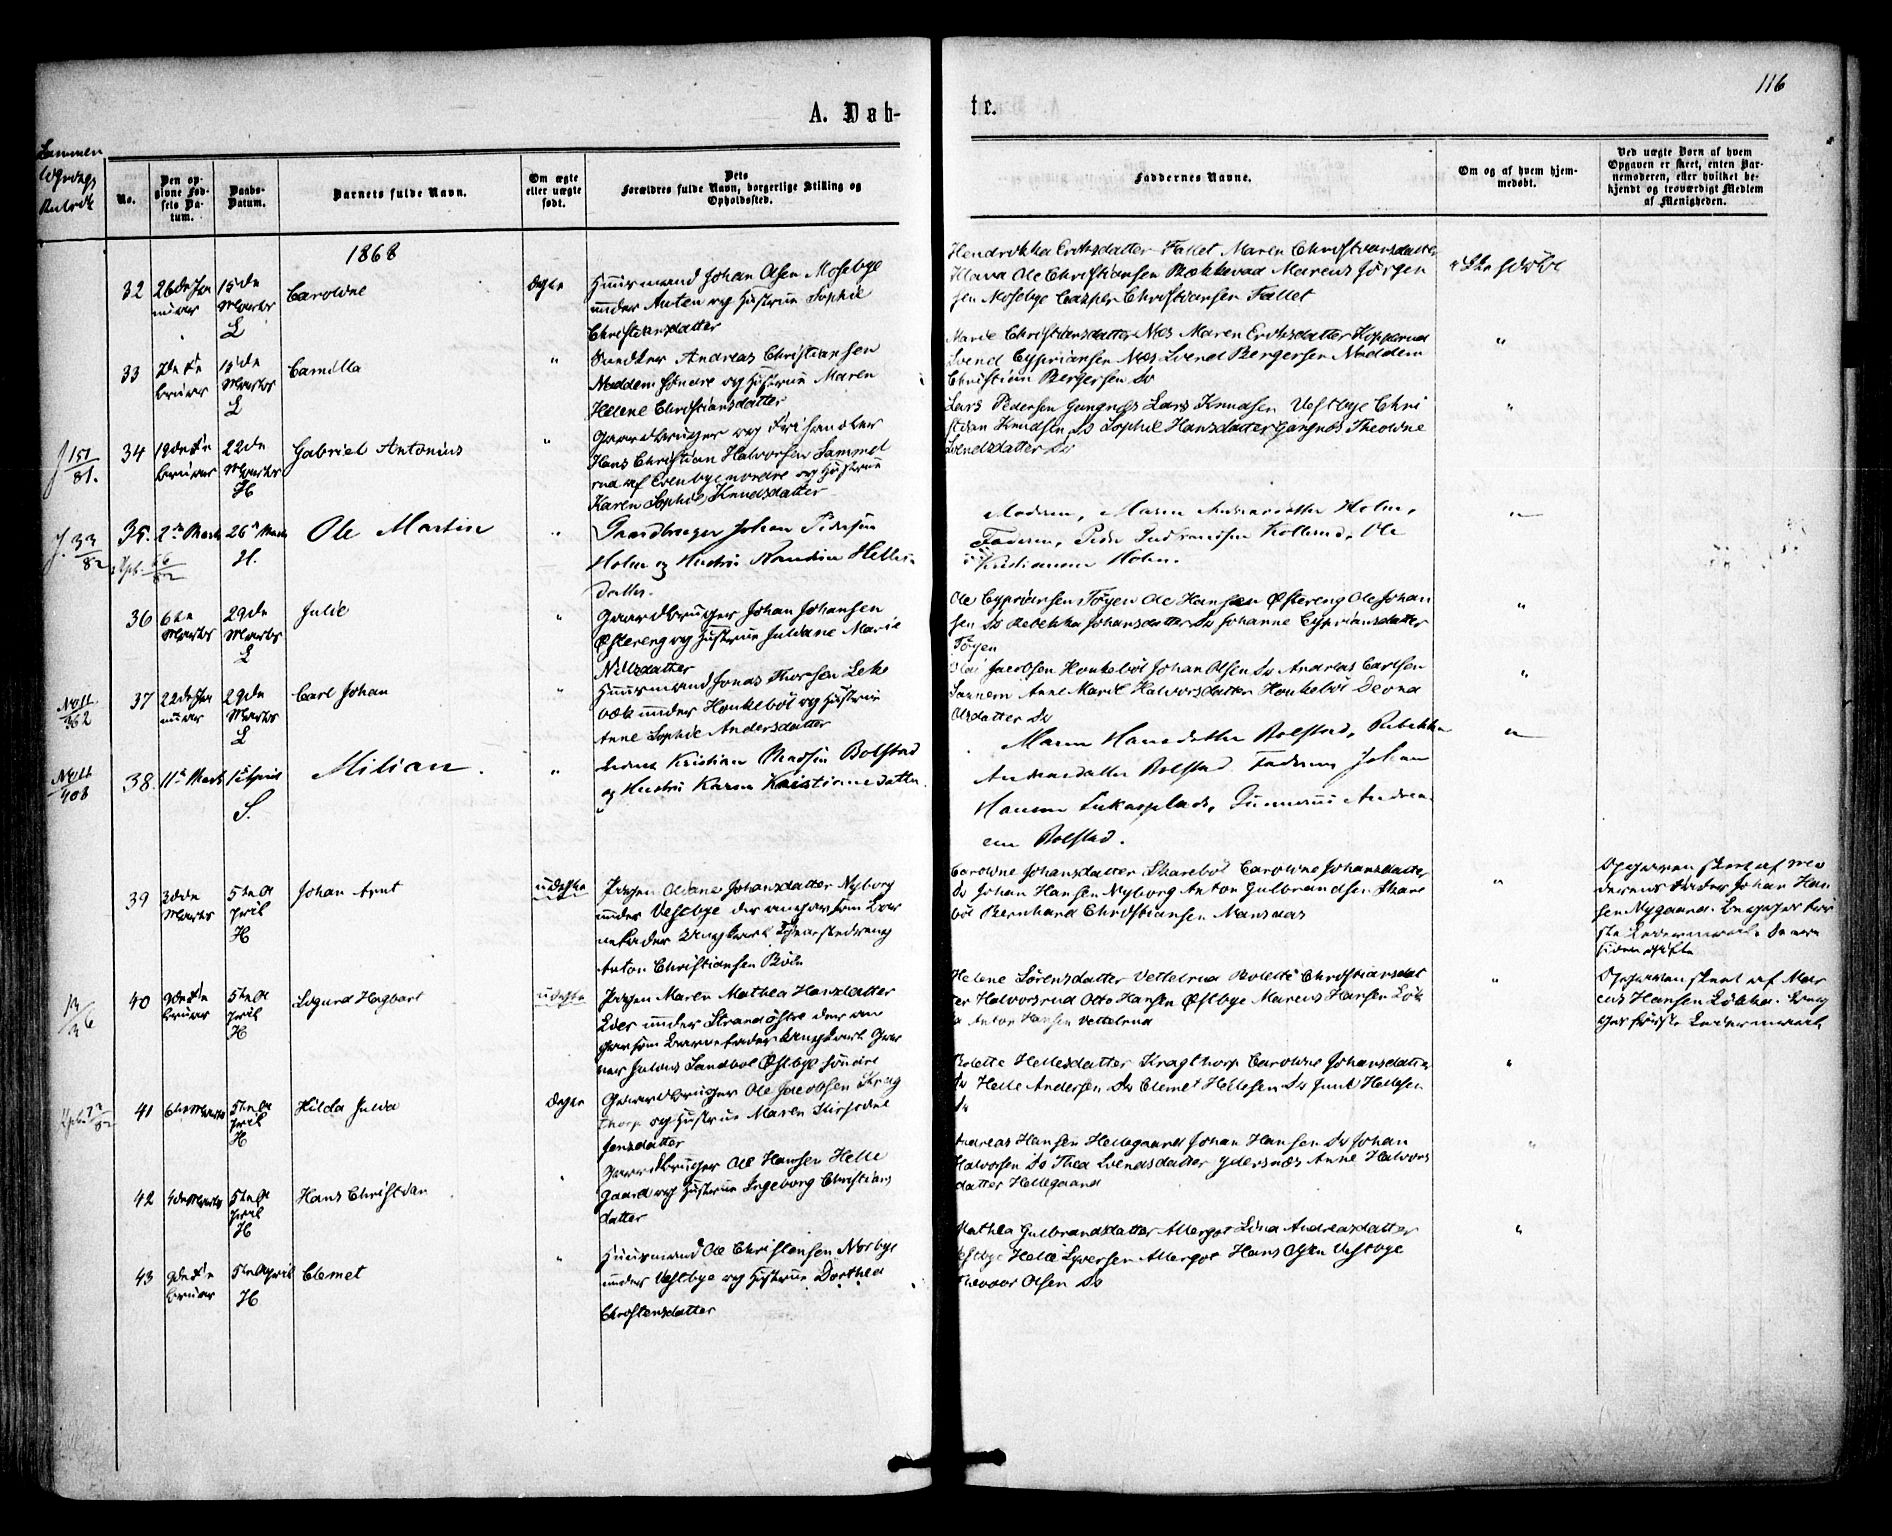 116
A. Døb-
te.
Sammen
No.
Den op-
givne Fød-
sels Da-
tum.
Daabs-
Datum.
Barnets fulde Navn.
Om ægte
eller uægte
født.
Dets
Forældres fulde Navn, borgerlige Stilling og
Opholdssted.
Faddernes Navne.
Om og af hvem hjem-
medøbt.
Ved uægte Børn af hvem
Opgaven er skeet, enten Bar-
nemoderen, eller hvilket be-
kjendt og troværdigt Medlem
af Menigheden.
1868
32
26de Ja
nuar
15de
Marts
L
Caroline
Ægte
Huusmand Johan Olsen Mosebye
under Auten og Hustrue Sophie
Christiansdatter
Hendrikka Eriksdatter Fallet Maren Christiansdatter
Ole Christiansen Bækkevad Marcus Jørgen
sen Mosebye Casper Christiansen Fallet
33
2de Fe
bruar
15de
Marts
L
Camilla
"
Snedker Andreas Christiansen
Noddem søndre og Hustrue Maren
Helene Christiansdatter
Marie Christiansdatter Næs Maren Eriksdatter Kopperud
Svend Cypriansen Næs Svend Bergersen Noddem
Christian Bergersen Do
"
J 151
81.
34
19de Fe
bruar
22de
Marts
H
Gabriel Antonius
"
Gaardbruger og Frihandler
Hans Christian Halvorsen Sammel
rud af Evenbye nordre og Hustrue
Karen Sophie Knudsdatter
Lars Pedersen Gangnæs Lars Knudsen Vestbye Chri
stian Knudsen Do Sophie Hansdatter Gangnæs Theoline
Svendsdatter Do
"
J. 33
82
35.
2den Marts
26de Marts
H.
Ole Martin
"
Gaardbruger Johan Pedersen
Holm og Hustru Randine Helles
datter.
Moderen, Maren Andreasdatter Holm,
Faderen, Peder Gudmundsen Kollerud, Ole
Kristiansen Holm.
"
36
6te
Marts
29de
Marts
L
Julie
"
Gaardbruger Johan Johansen
Østereng og Hustrue Juliane Marie
Nilsdatter
Ole Cypriansen Tøyen Ole Hansen Østereng Ole Johan
sen Do Rebekka Johansdatter Do Johanne Cypriansdatter
Tøyen
"
Natt
362
37
22de Ja
nuar
29de
Marts
L
Carl Johan
"
Huusmand Jonas Thorsen Leke
væk under Honkebøl og Hustrue
Anne Sophie Andersdatter
Jacobsen Honkebøl Johan Olsen Do Andreas Carlsen
Sannem Anne Marie Halvorsdatter Honkebøl Deona
Olsdatter Do
"
Natt
408
38.
11te Marts
1ste April
S.
Milian.
"
Kristian Madsen Bolstad
og Hustru Karen Kristiansdatter.
Maren Hansdatter Bolstad, Rebekka
Andreasdatter Bolstad. Faderen, Johan
Hansen Lukasplads, Gunnerius Andrea-
sen Bolstad.
"
39
3de
Marts
5te A
pril
H
Johan Arnt
uægte
Pigen Oliane Johansdatter Nyborg
under Vestbye der angav som Bar
nefader Ungkarl Tjenestedreng
Anton Christiansen Bøle
Caroline Johansdatter Skarebøl Caroline Johansdatter
Do Johan Hansen Nyborg Anton Gulbrandsen Skare
bøl Bernhard Christiansen Mansaas
"
Opgaven skeet af Mo
derens Fader Johan Han
sen Nygaard. Begges før
ste Leiermaal.
40
9de Fe
bruar
5te A
pril
H
Sigurd Hagbart
uægte
Pigen Maren Mathea Hansdatter
Eier under Strand østre der an
gav som Barnefader Ungkarl Gun
nar Julius Sandbøl Østbye søndre
Helene Sørensdatter Vettelrud Bolette Christiansdat
ter Halvorsrud Otto Hansen Østbye Marcus Hansen Løk
Anton Hansen Vettelrud
"
Opgaven skeet af Mar
cus Hansen Løkka. Beg
ges første Leiermaal.
41
6te Marts
5te A
pril
H
Hilda Julia
Ægte
Gaardbruger Ole Jacobsen Krag
thorp og Hustrue Maren Kirstine
Jensdatter
Bolette Hellesdatter Kragthorp Caroline Johansdatter
Do Helle Andersen Do Clemet Hellesen Do Juul Hellesen
Do
"
42
4de Marts
5te A
pril
H
Hans Christian
"
Gaardbruger Ole Hansen Helle
gaard og Hustrue Ingeborg Christians
datter
Andreas Hansen Hellegaard Johan Hansen Do Johan
Halvorsen Do Thea Svendsdatter Ydersnæs Anne Halvors
datter Hellegaard
"
43
9de Fe
bruar
5te April
H
Clemet
"
Huusmand Ole Christensen Norbye
under Vestbye og Hustrue Dorthea
Christensdatter
Mathea Gulbrandsdatter Allergot Lina Andreasdatter
Vestbye Helle Syversen Allergot Hans Olsen Vestbye
Theodor Olsen Do
"